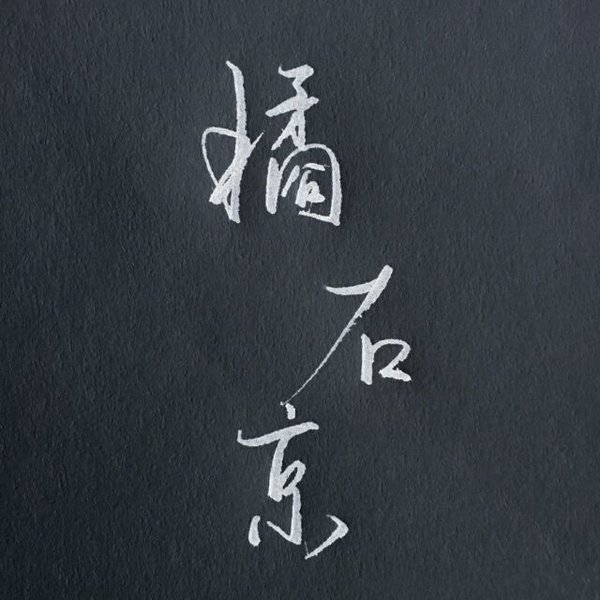 橘右京